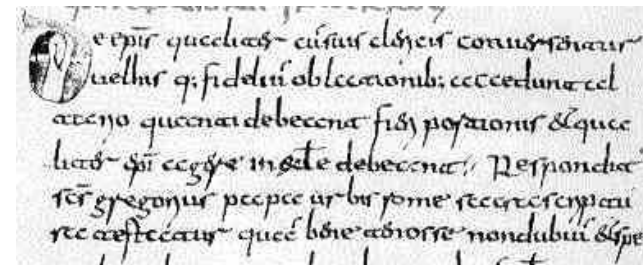 De epis̄ qualiter cū suis clericis conuersentur
uel his q; fideliū oblationib; accedunt al
tario quanti debeant fieri portionis & qua
liter ep̄i agere in eccl̄e debeant. Respondit
sc̄s gregorius papa urbis rome sacra scriptu
ra testatur quā bene te nosse non dubiū & spe